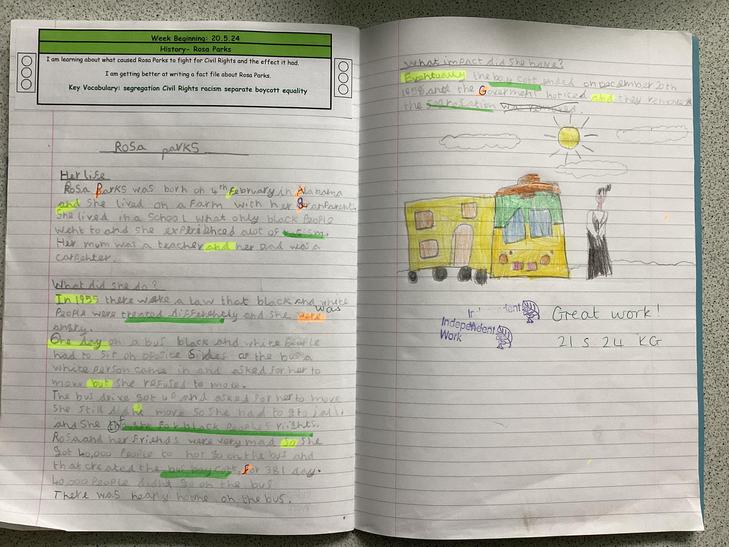 Week Beginning: 20.5.24
History- Rosa Parks
I am learning about what caused Rosa Parks to fight for Civil Rights and the effect it had.
I am getting better at writing a fact file about Rosa Parks.
Key Vocabulary: segregation Civil Rights racism separate boycott equality
Rosa parks
Her life
Rosa Parks was born on 4th February in Alabama
and She lived on a Farm with her
She lived in a School what only black People
went to and she expirenced alot of
Her mum was a teacher and her Dad was a
What did she do?
In 1955 there was a law that black and white
People were treated differently and she was
angry.
One day on a bus black and white People
had to sit on Sides of the bus a
white person came in and asked for her to
move but She refused to move.
The bus drive got up and asked for her to move
She Still move So She had to go to jail
and She for black People's rights.
Rosa and her friends were very mad so She
got 40,000 People to not go on the bus and
that created the bus boycott for 381 day.
40,000 People go on the bus
There was nearly on the bus.
What impact did She have?
Eventually the boycott ended on December 20th
and the Goverment noticed and they removed
the
Independent
Work
Great work!
21.5.24 KG